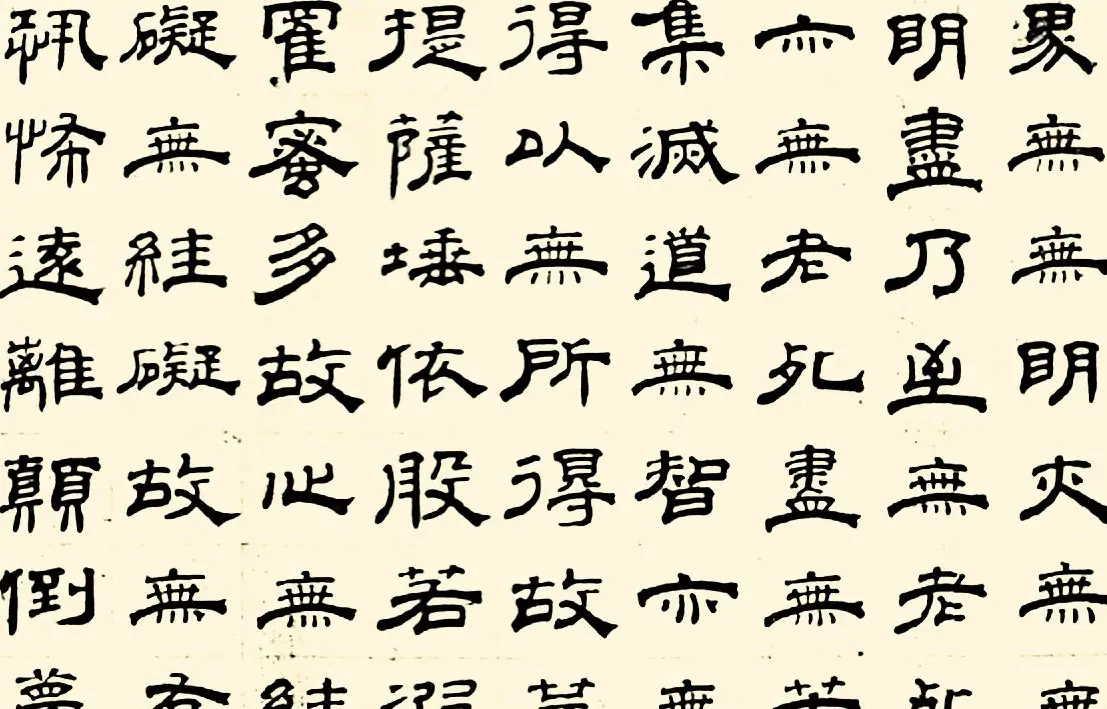 界無無明亦無無
明盡乃至無老死
亦無老死盡無苦
集滅道無智亦無
得以無所得故菩
提薩埵依般若
羅蜜多故心無絓
礙無絓礙故無有
恐怖遠離顛倒夢